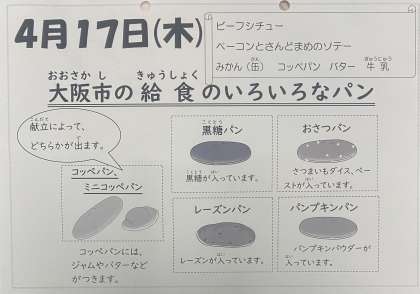 4月17日(木)
ビーフシチュー
ベーコンとさんどまめのソテー
みかん(缶) コッペパン バター 牛乳
大阪市の給食のいろいろなパン
献立によって、
どちらかが出ます。
コッペパン、
ミニコッペパン
コッペパンには、
ジャムやバターなど
がつきます。
黒糖パン
黒糖が入っています。
おさつパン
さつまいもダイス、ペー
ストが入っています。
レーズンパン
レーズンが入っています。
パンプキンパン
パンプキンパウダーが
入っています。